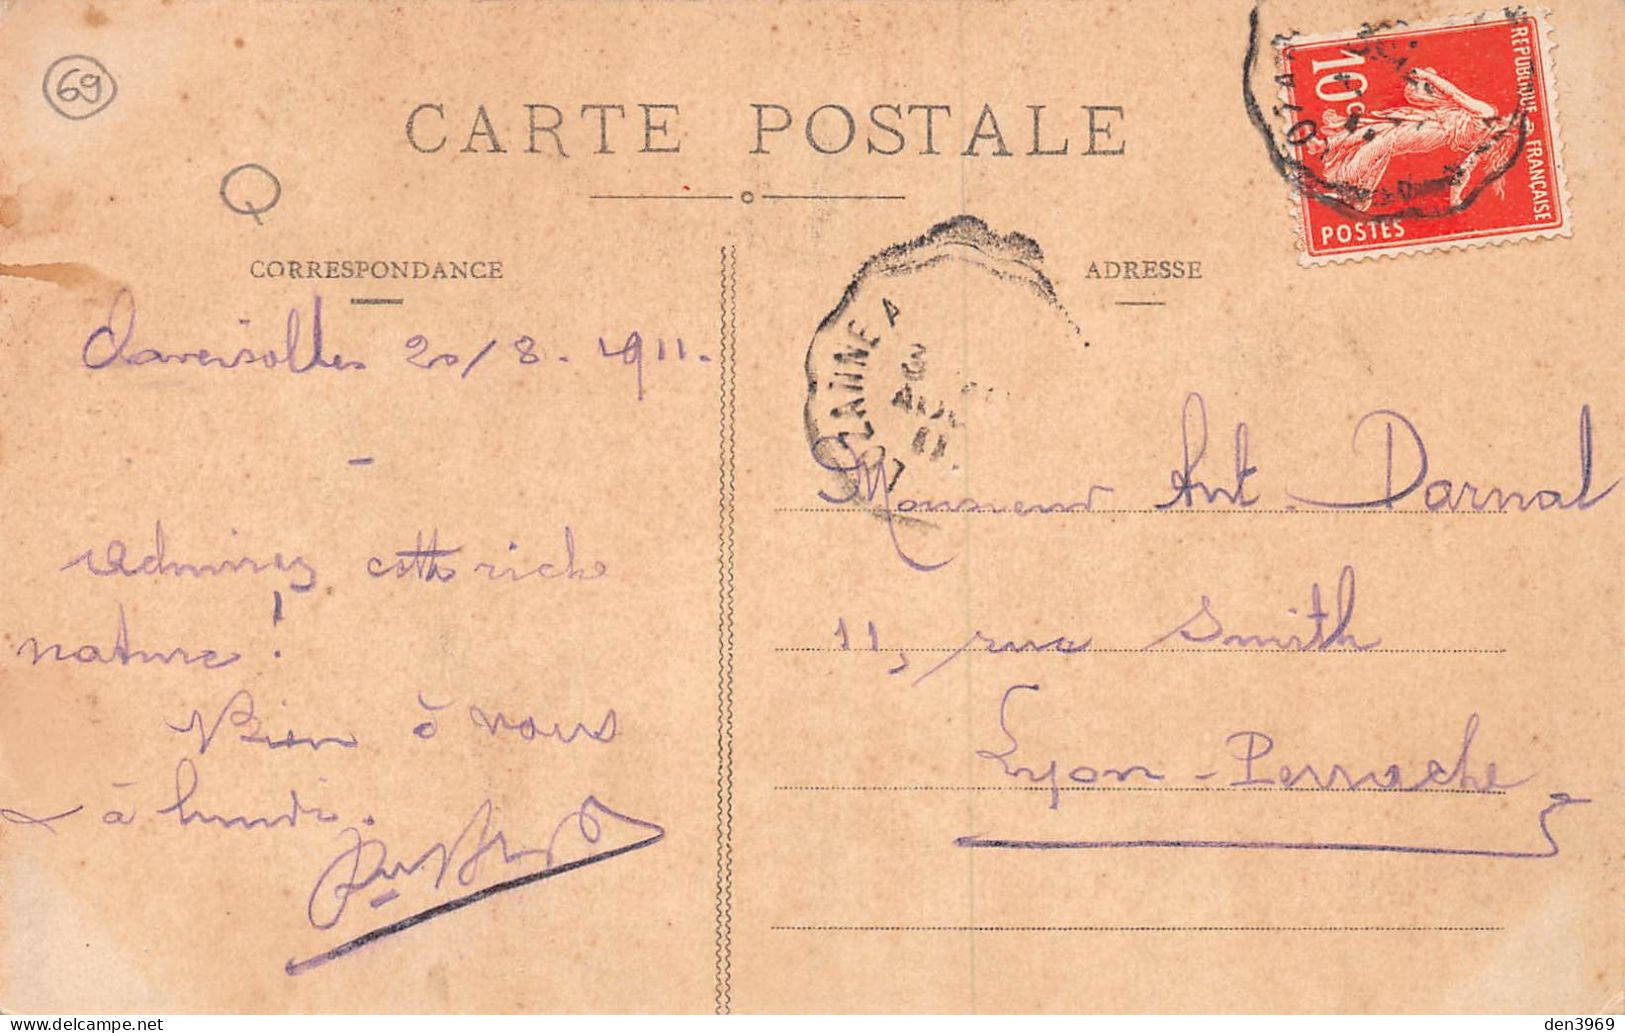 69
CARTE POSTALE
10c
REPUBLIQUE FRANÇAISE
POSTES
CORRESPONDANCE
Claveisolles 20/8. 1911.
-
Admirez cette riche
nature!
Bien à vous
& à lundi.
ADRESSE
OZANNE A
AOU
11
Monsieur Ant. Darnal
11, rue Smith
Lyon-Perrache
den3969